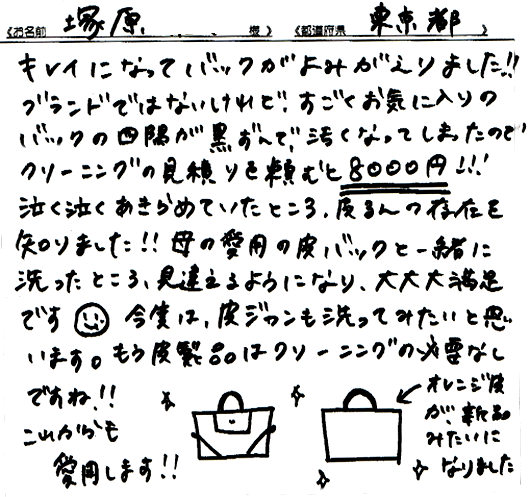 お名前 塚原 様 都道府県 東京都
キレイになってバックがよみがえりました!!
ブランドではないけれど、すごくお気に入りの
バックの四隅が黒ずんで、汚くなってしまったので
クリーニングの見積りを頼むと8000円!!!
泣く泣くあきらめていたところ、皮るんの存在を
知りました!!母の愛用の皮バックと一緒に
洗ったところ、見違えるようになり、大大大満足
です 今度は、皮ジャンも洗ってみたいと思
います。もう皮製品はクリーニングの必要なし
ですね!!
これからも
愛用します!!
オレンジ皮
が、新品
みたいに
なりました